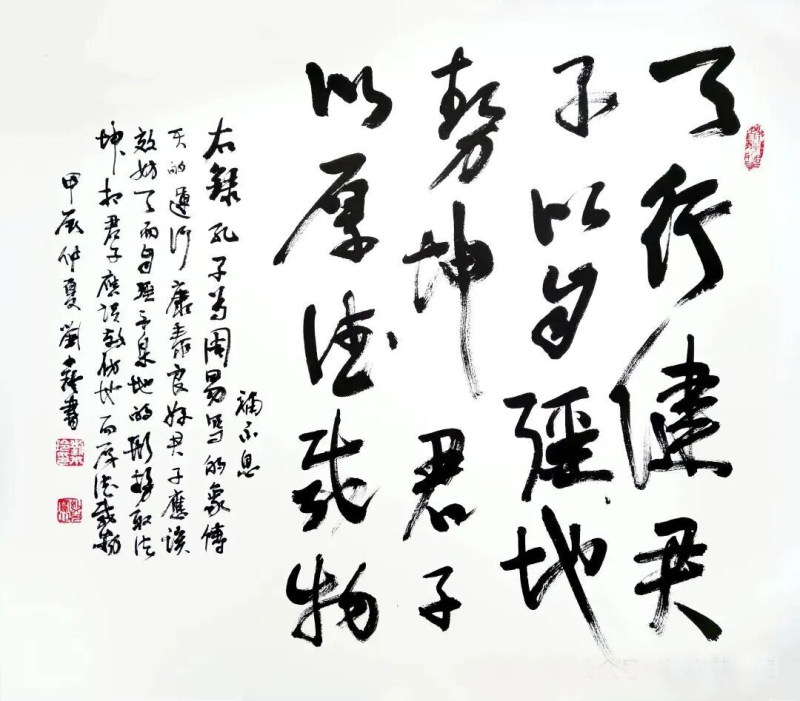 天行健君
子以自彊地
勢坤君子
以厚德載物
補不息
右錄孔子为周易写的象傳
天的運行康泰良好君子應该
效妨天而自强于是地的形势取法
坤相君子應该效仿地而厚德载物
甲辰仲夏劉書